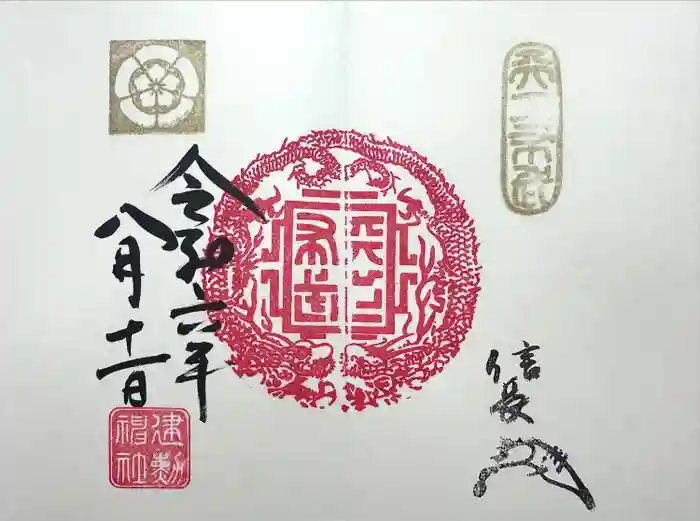 天下
布武
信長
令和六年
八月十一日
建勲
神社